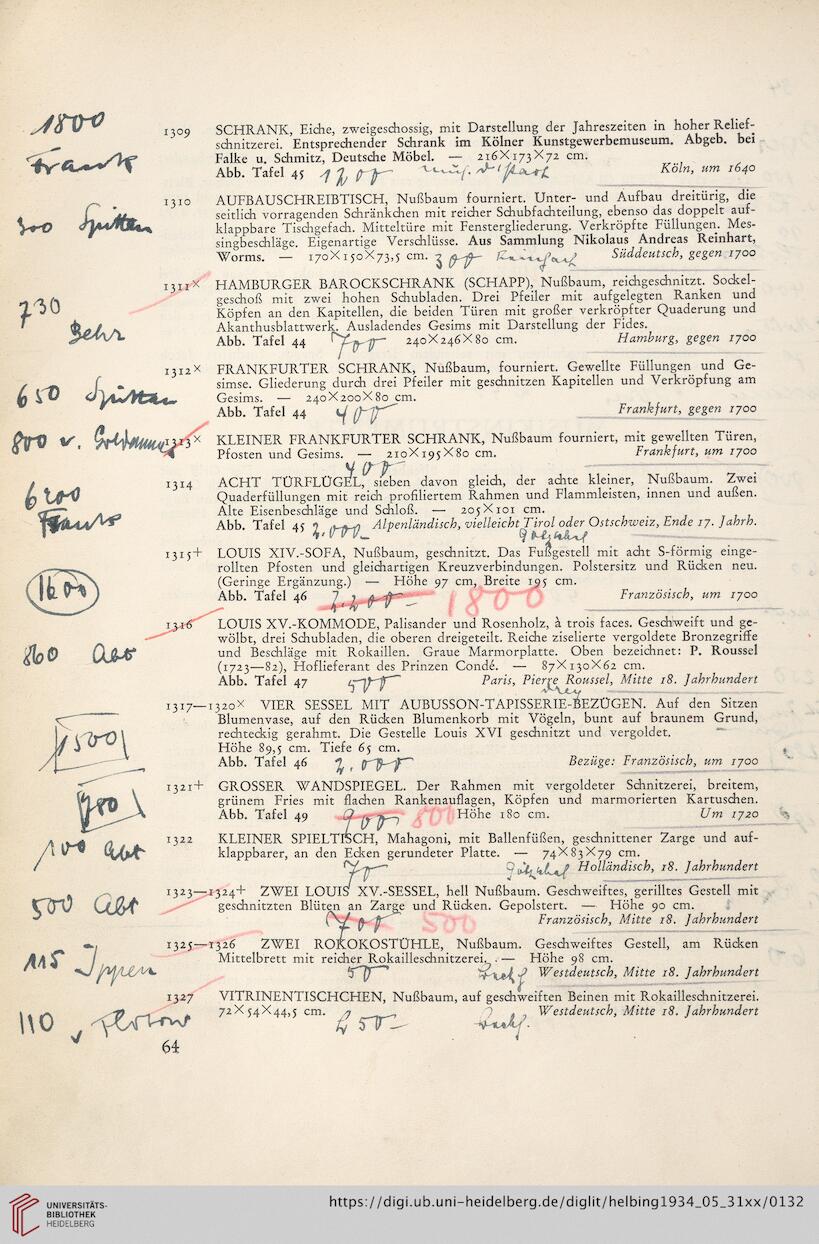 1800
Frank
1309 SCHRANK, Eiche, zweigeschossig, mit Darstellung der Jahreszeiten in hoher Relief-
schnitzerei. Entsprechender Schrank im Kölner Kunstgewerbemuseum. Abgeb. bei
Falke u. Schmitz, Deutsche Möbel. — 216×173×72 cm.
Abb. Tafel 45 Köln, um 1640
300 Spitten
1310 AUFBAUSCHREIBTISCH, Nußbaum fourniert. Unter- und Aufbau dreitürig, die
seitlich vorragenden Schränkchen mit reicher Schubfachteilung, ebenso das doppelt auf-
klappbare Tischgefach. Mitteltüre mit Fenstergliederung. Verkröpfte Füllungen. Mes-
singbeschläge. Eigenartige Verschlüsse. Aus Sammlung Nikolaus Andreas Reinhart,
Worms. — 170×150×73,5 cm. 300 Süddeutsch, gegen 1700
730
1311× HAMBURGER BAROCKSCHRANK (SCHAPP), Nußbaum, reichgeschnitzt. Sockel-
geschoß mit zwei hohen Schubladen. Drei Pfeiler mit aufgelegten Ranken und
Köpfen an den Kapitellen, die beiden Türen mit großer verkröpfter Quaderung und
Akanthusblattwerk. Ausladendes Gesims mit Darstellung der Fides.
Abb. Tafel 44 700 240×246×80 cm. Hamburg, gegen 1700
650 Spitten
1312× FRANKFURTER SCHRANK, Nußbaum, fourniert. Gewellte Füllungen und Ge-
simse. Gliederung durch drei Pfeiler mit geschnitzen Kapitellen und Verkröpfung am
Gesims. — 240×200×80 cm.
Abb. Tafel 44 400 Frankfurt, gegen 1700
800 v.
1313× KLEINER FRANKFURTER SCHRANK, Nußbaum fourniert, mit gewellten Türen,
Pfosten und Gesims. — 210×195×80 cm. Frankfurt, um 1700
400
6200
1314 ACHT TÜRFLÜGEL, sieben davon gleich, der achte kleiner, Nußbaum. Zwei
Quaderfüllungen mit reich profiliertem Rahmen und Flammleisten, innen und außen.
Alte Eisenbeschläge und Schloß. — 205×101 cm.
Abb. Tafel 45 2.000 Alpenländisch, vielleicht Tirol oder Ostschweiz, Ende 17. Jahrh.
1600
1315+ LOUIS XIV.-SOFA, Nußbaum, geschnitzt. Das Fußgestell mit acht S-förmig einge-
rollten Pfosten und gleichartigen Kreuzverbindungen. Polstersitz und Rücken neu.
(Geringe Ergänzung.) — Höhe 97 cm, Breite 195 cm.
Abb. Tafel 46 2.200 1800 Französisch, um 1700
860 Abt
1316 LOUIS XV.-KOMMODE, Palisander und Rosenholz, à trois faces. Geschweift und ge-
wölbt, drei Schubladen, die oberen dreigeteilt. Reiche ziselierte vergoldete Bronzegriffe
und Beschläge mit Rokaillen. Graue Marmorplatte. Oben bezeichnet: P. Roussel
(1723—82), Hoflieferant des Prinzen Condé. — 87×130×62 cm.
Abb. Tafel 47 500 Paris, Pierre Roussel, Mitte 18. Jahrhundert
1500
1317—1320× VIER SESSEL MIT AUBUSSON-TAPISSERIE-BEZÜGEN. Auf den Sitzen
Blumenvase, auf den Rücken Blumenkorb mit Vögeln, bunt auf braunem Grund,
rechteckig gerahmt. Die Gestelle Louis XVI geschnitzt und vergoldet.
Höhe 89,5 cm. Tiefe 65 cm.
Abb. Tafel 46 2.000 Bezüge: Französisch, um 1700
1321+ GROSSER WANDSPIEGEL. Der Rahmen mit vergoldeter Schnitzerei, breitem,
grünem Fries mit flachen Rankenauflagen, Köpfen und marmorierten Kartuschen.
Abb. Tafel 49 900 800 Höhe 180 cm. Um 1720
100 Abt
1322 KLEINER SPIELTISCH, Mahagoni, mit Ballenfüßen, geschnittener Zarge und auf-
klappbarer, an den Ecken gerundeter Platte. — 74×83×79 cm.
70 Holländisch, 18. Jahrhundert
500 Abt
1323—1324+ ZWEI LOUIS XV.-SESSEL, hell Nußbaum. Geschweiftes, gerilltes Gestell mit
geschnitzten Blüten an Zarge und Rücken. Gepolstert. — Höhe 90 cm.
700 500 Französisch, Mitte 18. Jahrhundert
115 Ippen
1325—1326 ZWEI ROKOKOSTÜHLE, Nußbaum. Geschweiftes Gestell, am Rücken
Mittelbrett mit reicher Rokailleschnitzerei. — Höhe 98 cm.
50 Westdeutsch, Mitte 18. Jahrhundert
110 v
1327 VITRINENTISCHCHEN, Nußbaum, auf geschweiften Beinen mit Rokailleschnitzerei.
72×54×44,5 cm. 50 Westdeutsch, Mitte 18. Jahrhundert
64
UNIVERSITÄTS-
BIBLIOTHEK
HEIDELBERG
https://digi.ub.uni-heidelberg.de/diglit/helbing1934_05_31xx/0132